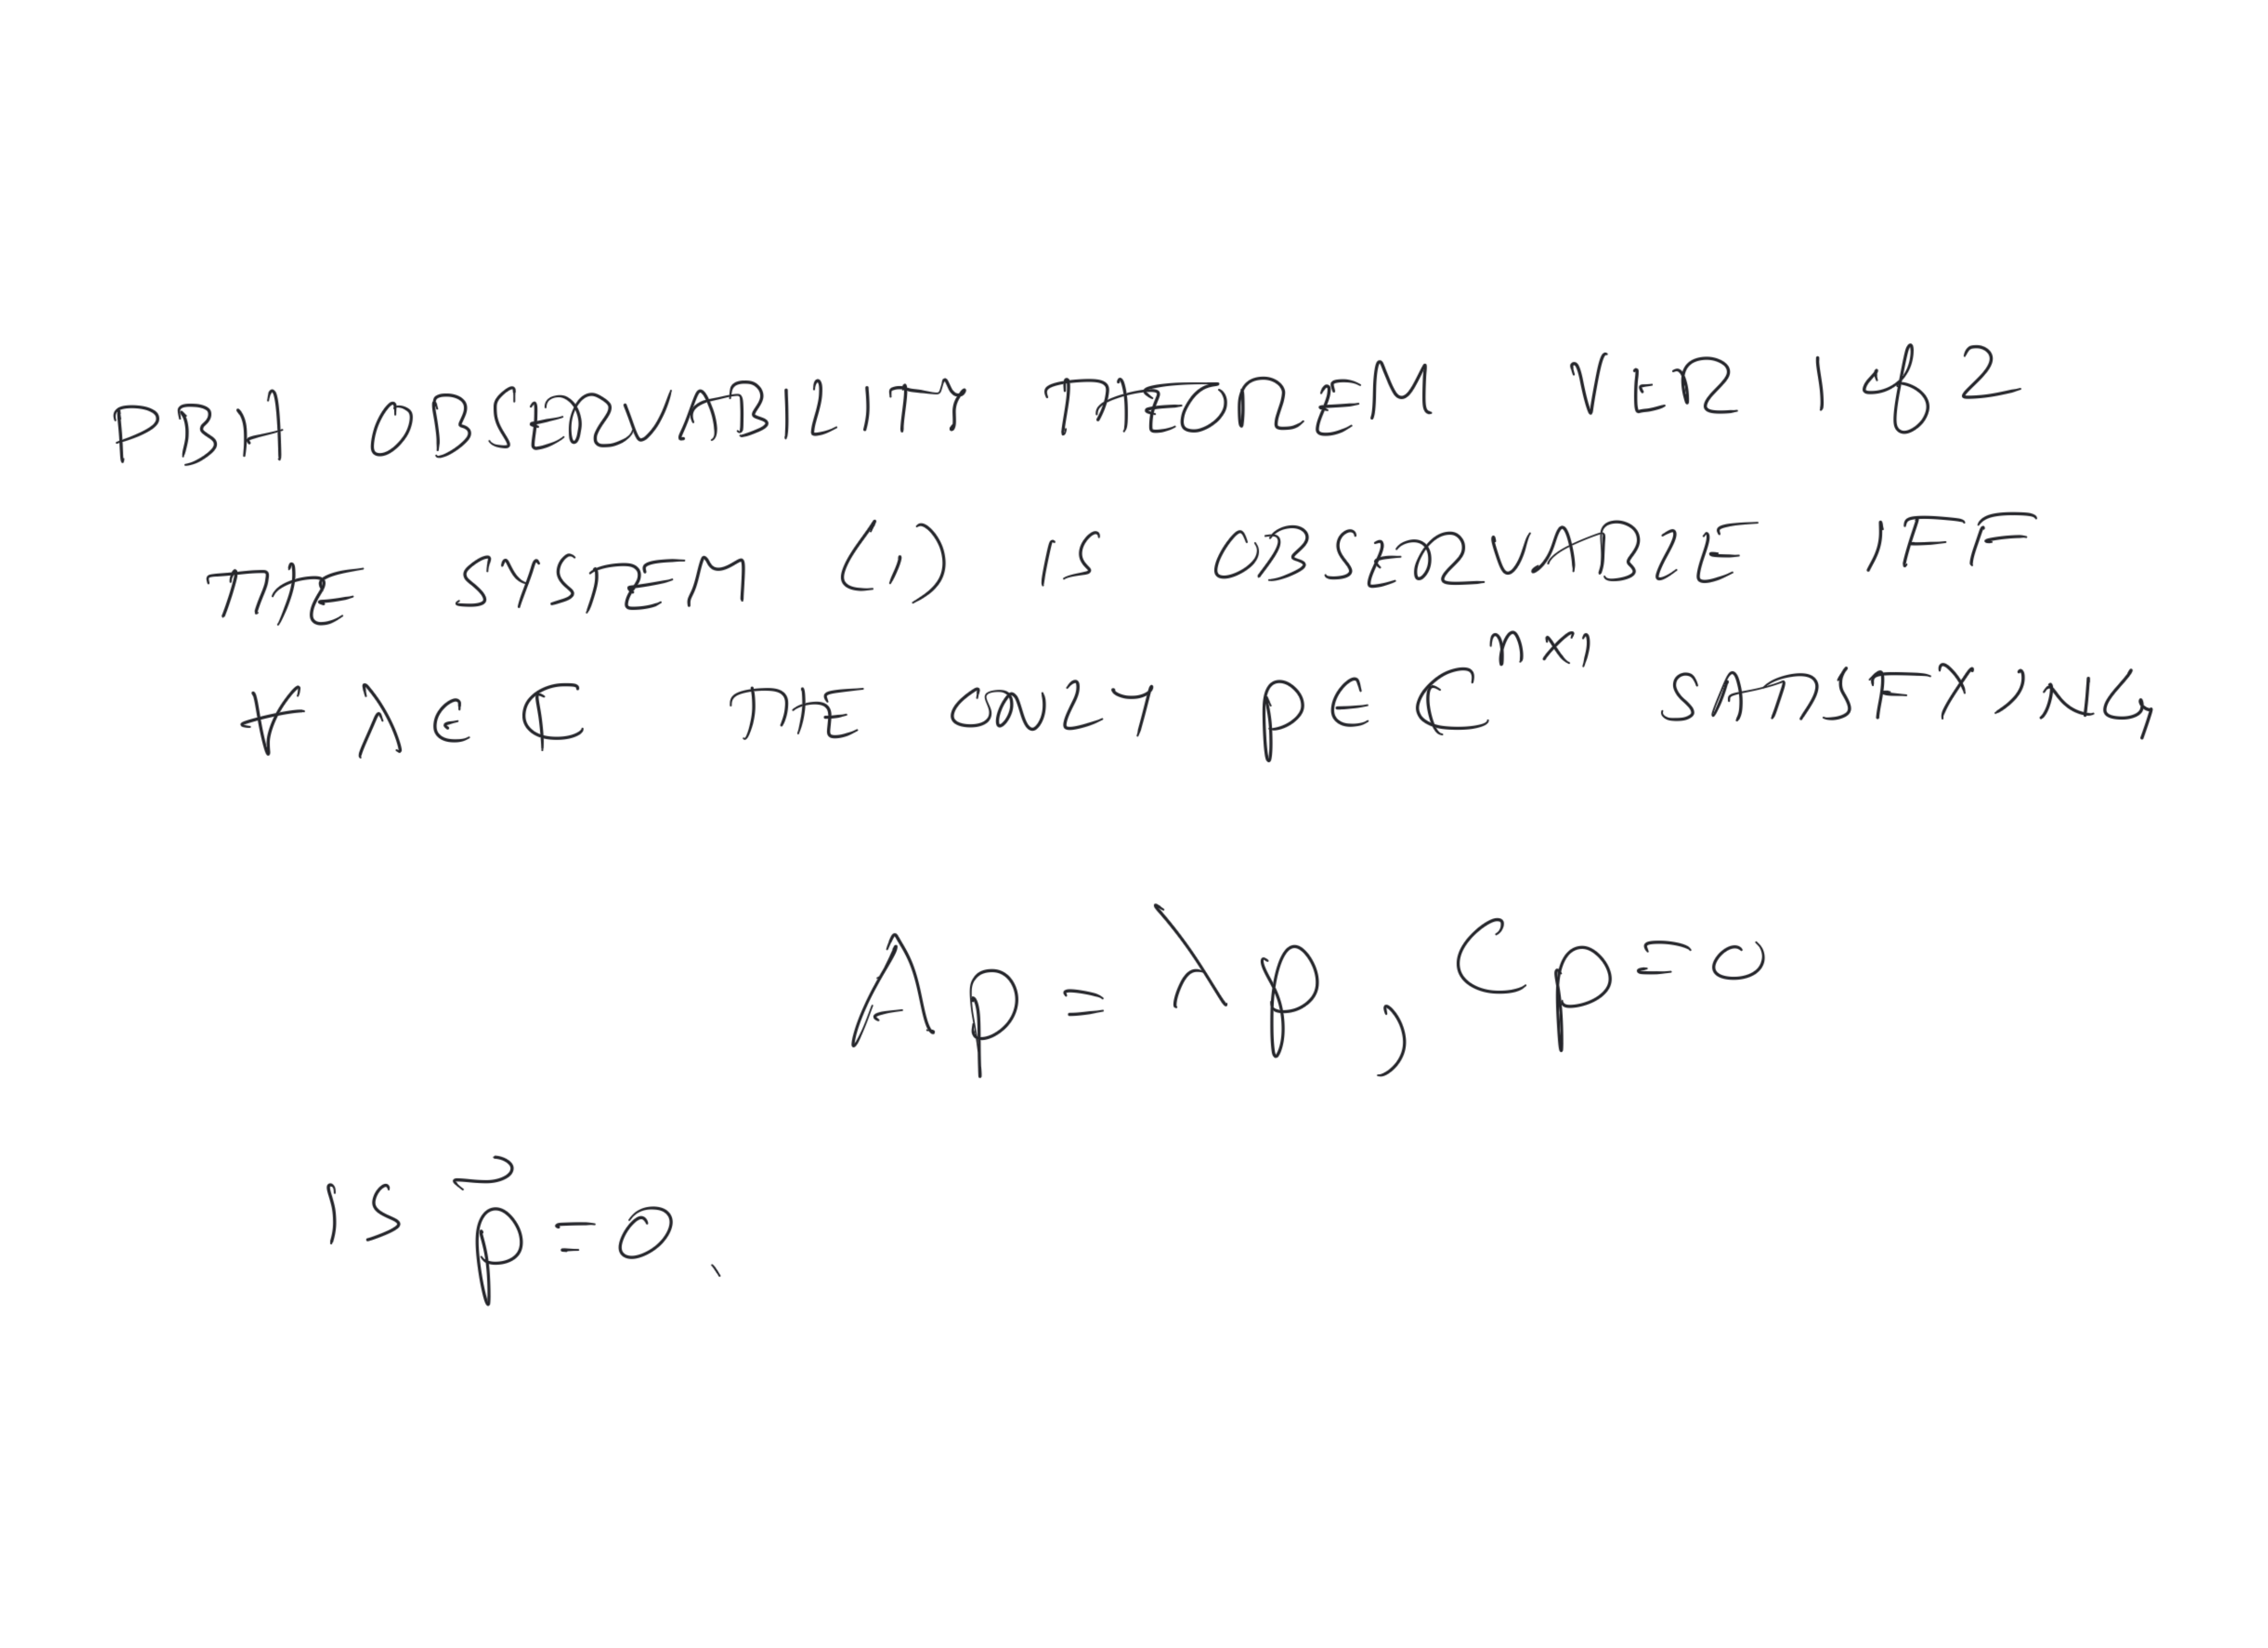 PBH OBSERVABILITY THEOREM VER 1 of 2
THE SYSTEM (1) IS OBSERVABLE IFF
∀ λ ∈ ℂ THE ONLY p ∈ ℂ^{n×1} SATISFYING
Ap = λp, Cp = 0
IS p̃ = 0.